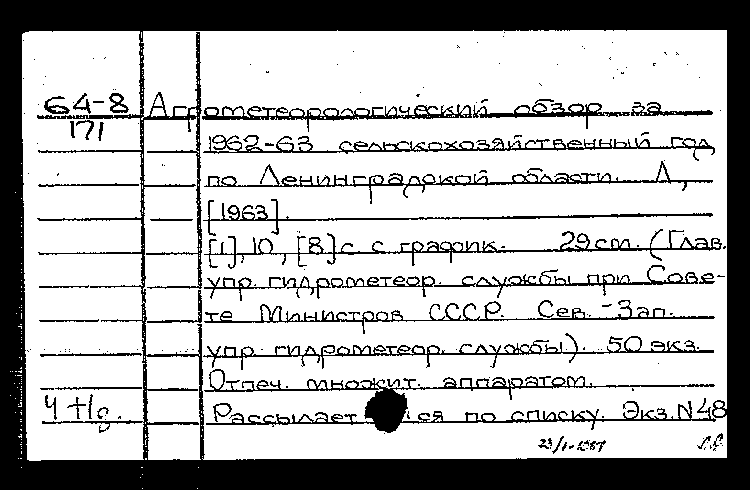 64-8 Агрометеорологический обзор за
171
1962-63 сельскохозяйственный год
по Ленинградской области. Л,
[1963].
[1], 10, [8] с с график. 29 см. (Глав.
упр. гидрометеор. службы при Сове-
те Министров СССР. Сев.-Зап.
упр. гидрометеор. службы). 50 экз.
Отпеч. множит. аппаратом.
Рассылается по списку. Экз. N 48